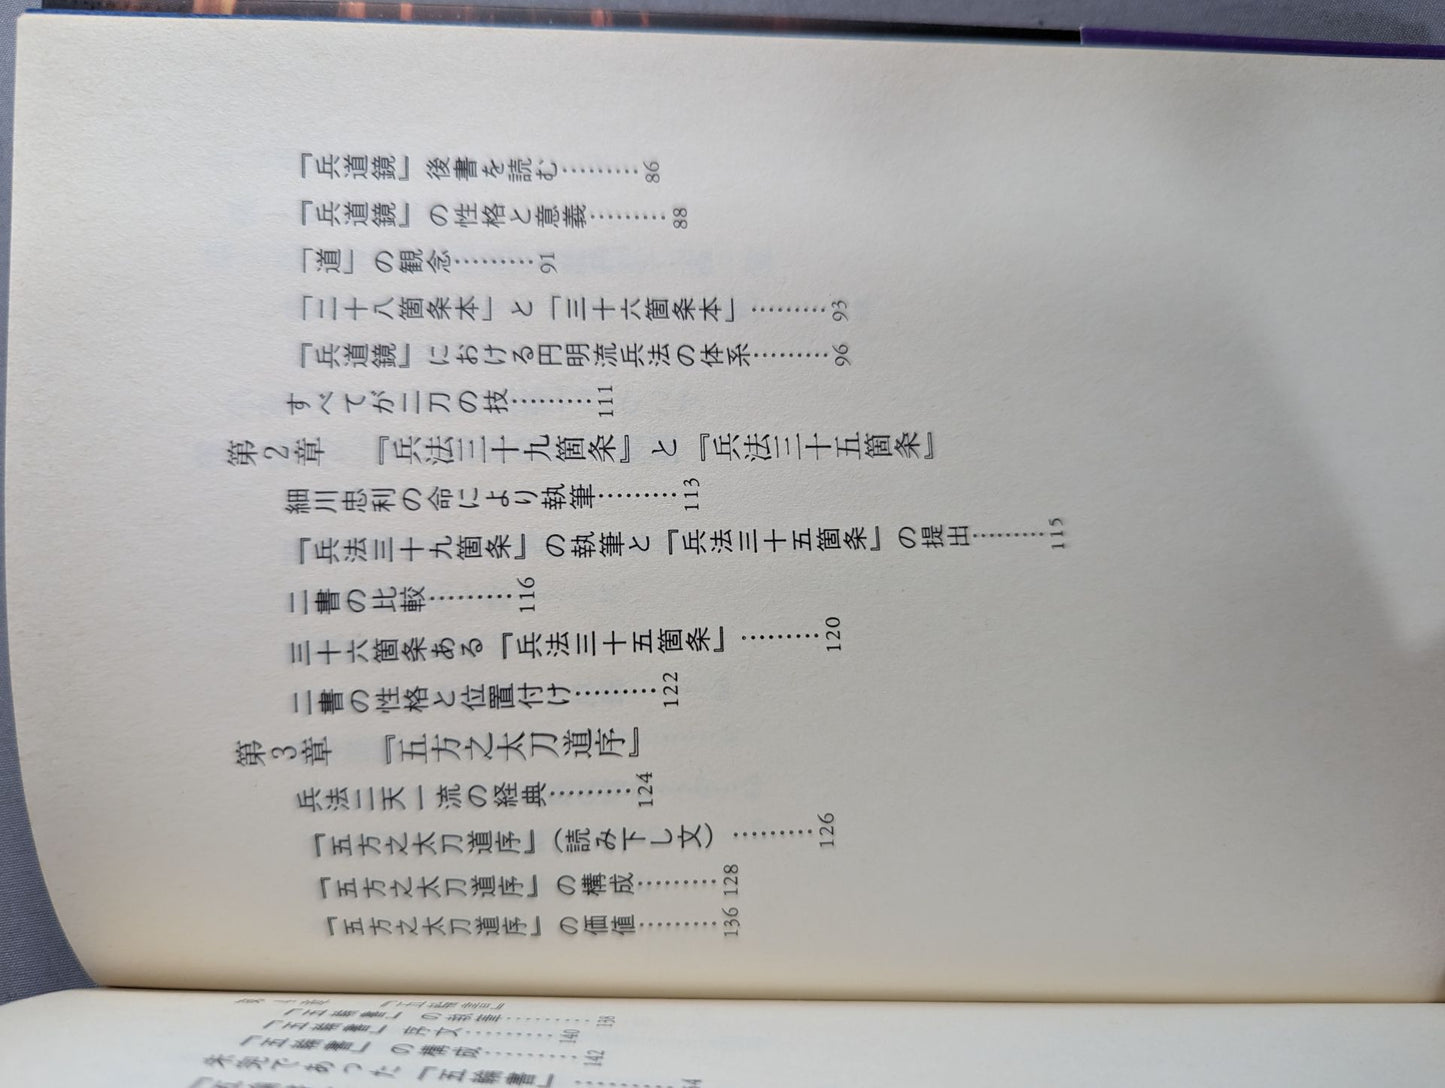 『兵道鏡』後書を読む………86
『兵道鏡』の性格と意義………88
「道」の観念………91
「二十八箇条本」と「三十六箇条本」………93
『兵道鏡』における円明流兵法の体系………96
すべてが二刀の技………111
第2章 『兵法三十九箇条』と『兵法三十五箇条』
細川忠利の命により執筆………113
『兵法三十九箇条』の執筆と『兵法三十五箇条』の提出………115
二書の比較………116
三十六箇条ある『兵法三十五箇条』………120
二書の性格と位置付け………122
第3章 『五方之太刀道序』
兵法二天一流の経典………124
『五方之太刀道序』(読み下し文)………126
『五方之太刀道序』の構成………128
『五方之太刀道序』の価値………136
第4章 『五輪書』
『五輪書』の執筆………138
『五輪書』序文………140
『五輪書』の構成………142
未完であった『五輪書』………